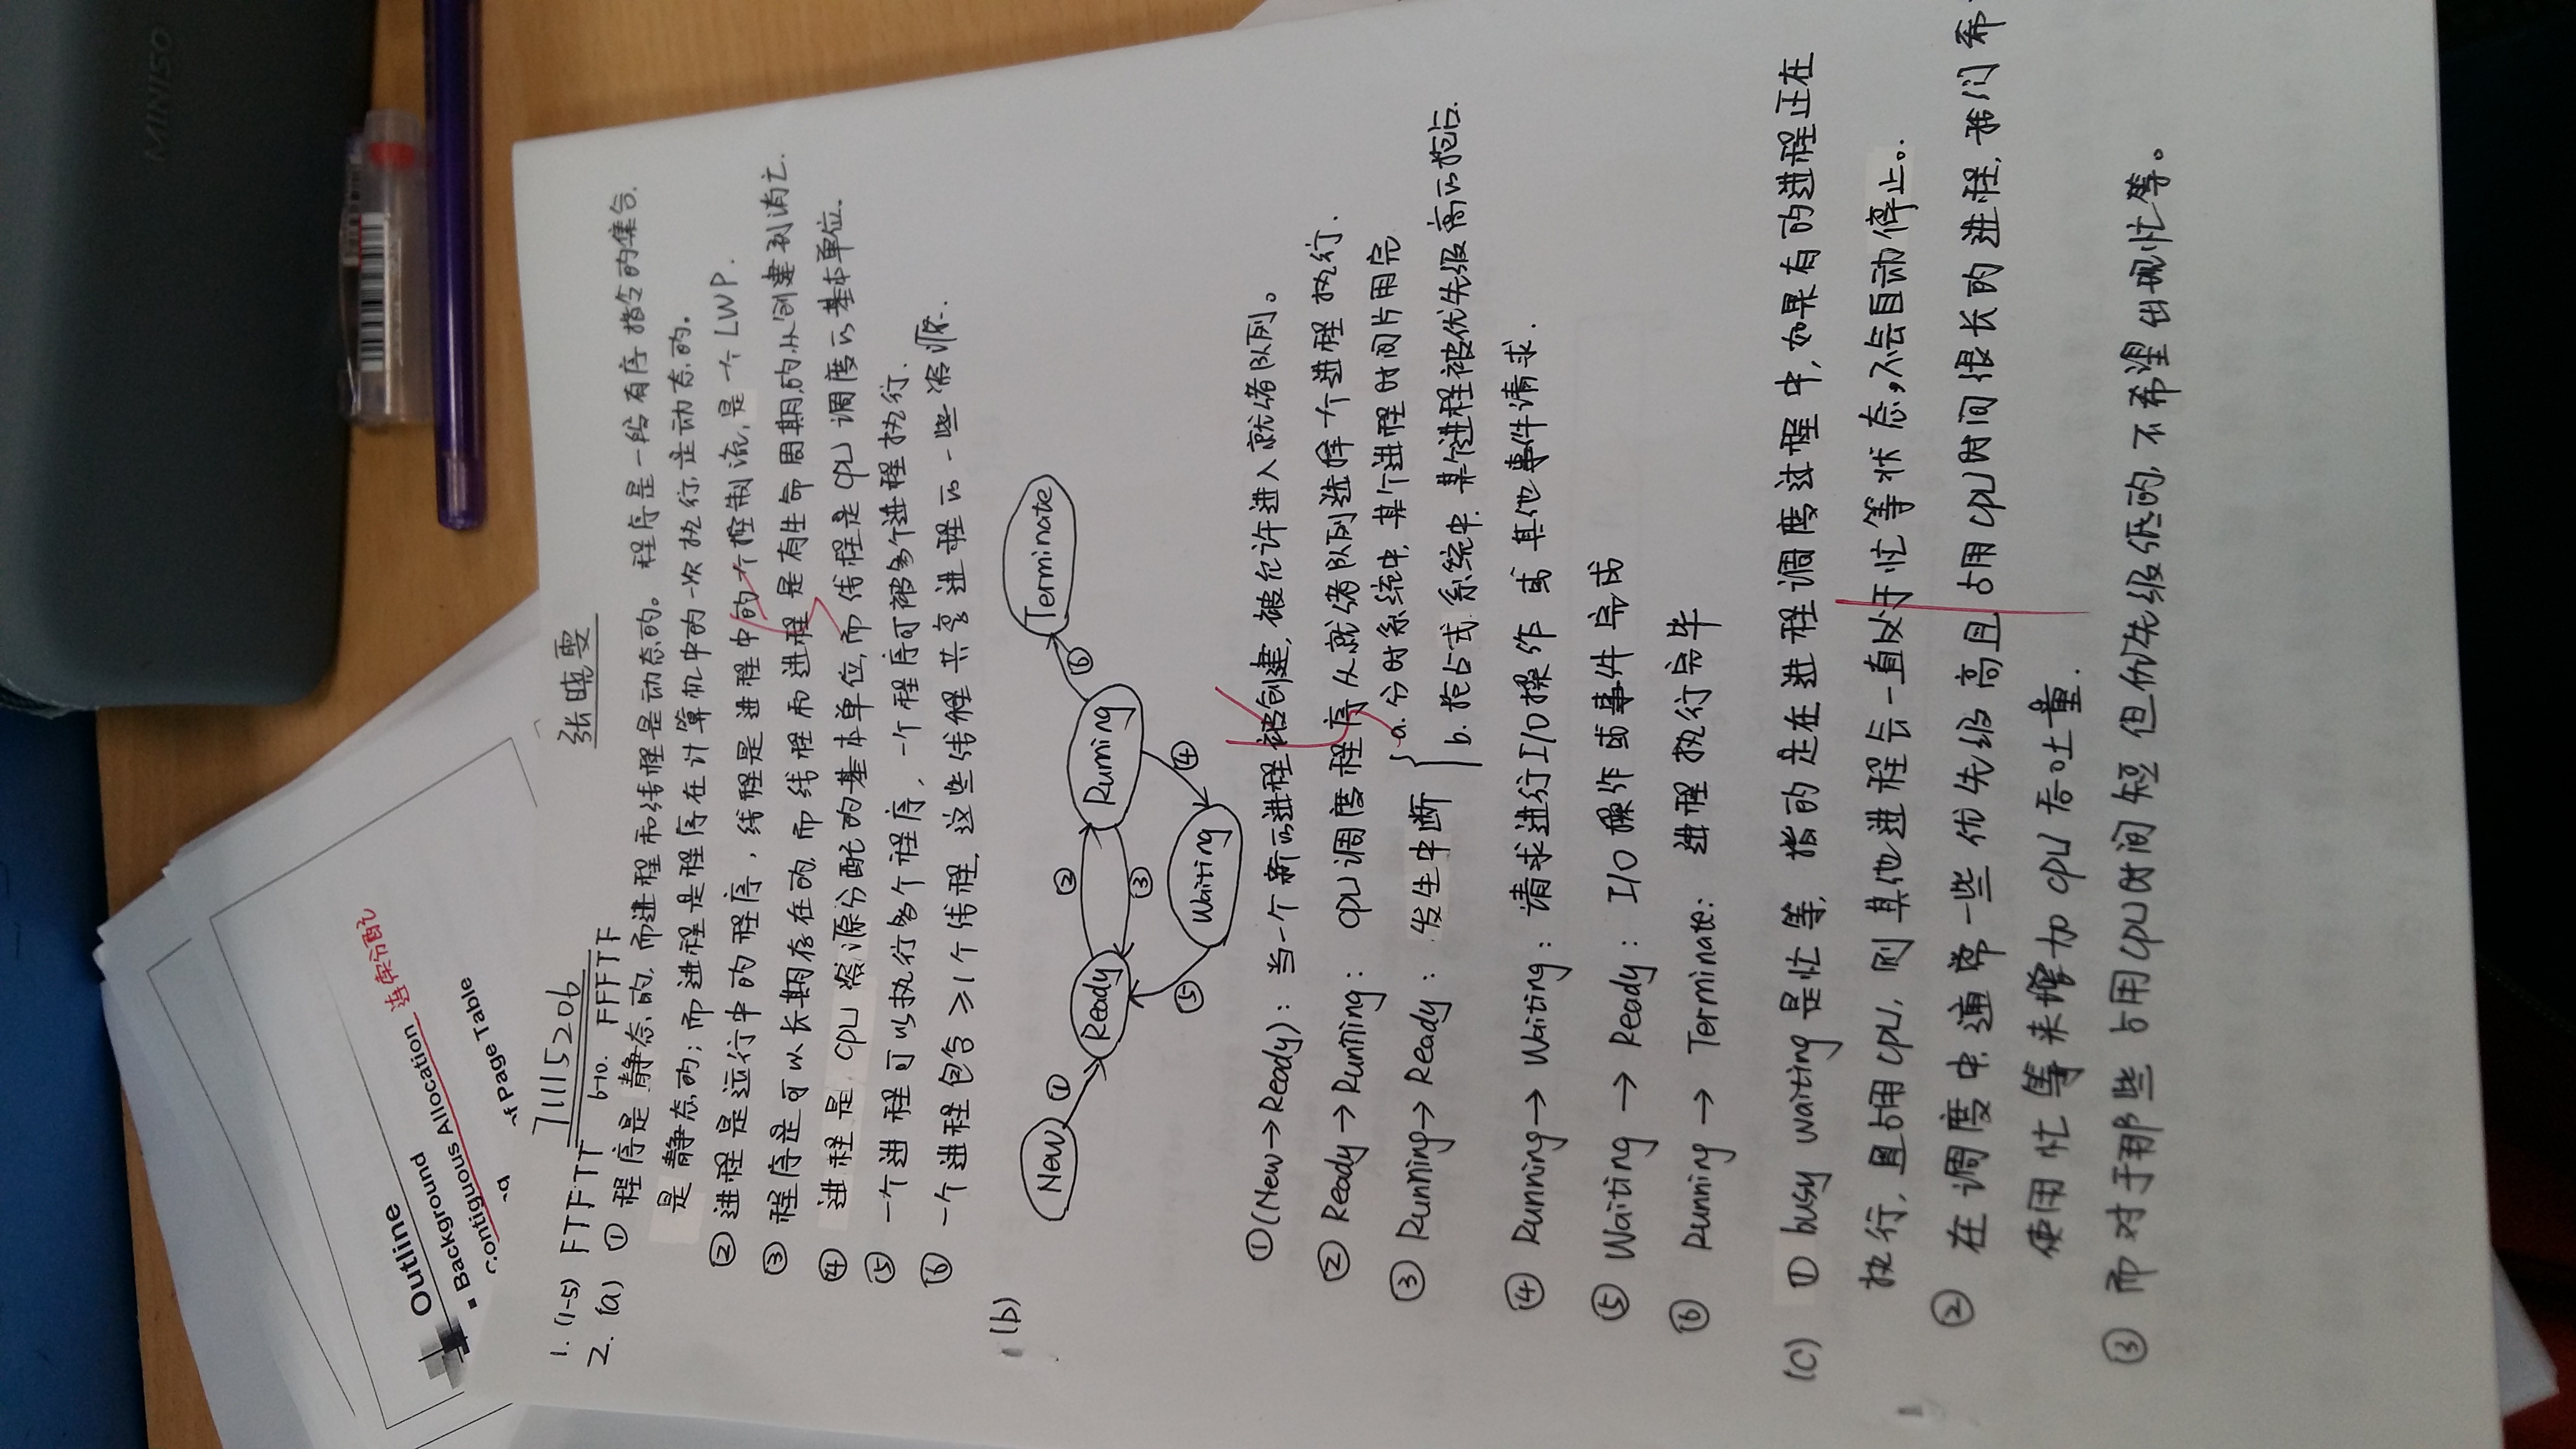 MINISO
Outline
▪ Background
Contiguous Allocation 连续分配
of Page Table
71115206
张晓雯
1. (1-5) FTFTT 6-10. FFFTF
2. (a) ① 程序是静态的, 而进程和线程是动态的。程序是一段有序指令的集合,
是静态的; 而进程是程序在计算机中的一次执行, 是动态的。
② 进程是运行中的程序, 线程是进程中的一个控制流, 是一个LWP.
③ 程序是可以长期存在的, 而线程和进程是有生命周期的, 从创建到消亡.
④ 进程是CPU资源分配的基本单位, 而线程是CPU调度的基本单位.
⑤ 一个进程可以执行多个程序, 一个程序可被多个进程执行.
⑥ 一个进程包含≥1个线程, 这些线程共享进程的一些资源.
(b)
New ① Ready ② Running ⑥ Terminate
③
⑤ Waiting ④
①(New→Ready): 当一个新的进程被创建, 被允许进入就绪队列。
② Ready→Running: CPU调度程序从就绪队列选择一个进程执行.
③ Running→Ready: 发生中断 { a. 分时系统中, 某个进程时间片用完
b. 抢占式系统中, 某个进程被优先级高的抢占.
④ Running→Waiting: 请求进行I/O操作或其他事件请求.
⑤ Waiting→Ready: I/O操作或事件完成
⑥ Running→Terminate: 进程执行完毕
(c) ① busy waiting是忙等, 指的是在进程调度过程中, 如果有的进程正在
执行, 且占用CPU, 则其他进程会一直处于忙等状态, 不会自动停止。
② 在调度中, 通常一些优先级高且占用CPU时间很长的进程, 我们希
使用忙等来增加CPU吞吐量.
③ 而对于那些占用CPU时间短但优先级低的, 不希望出现忙等。